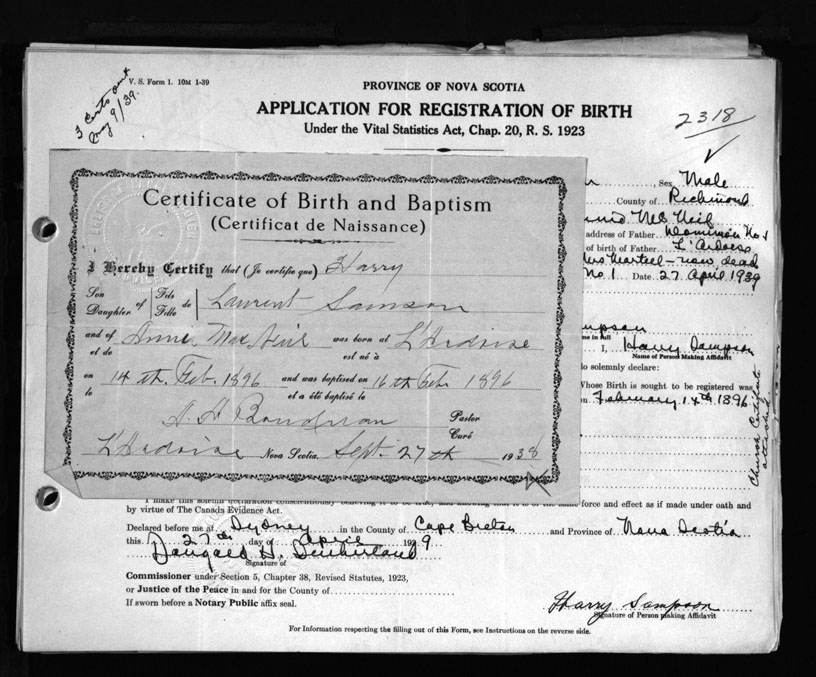 V. S. Form 1. 10M 1-39
3 Certs
Aug 9/39.
PROVINCE OF NOVA SCOTIA
APPLICATION FOR REGISTRATION OF BIRTH
Under the Vital Statistics Act, Chap. 20, R. S. 1923
2318
Sex Male
County of Richmond
Mc Neil
address of Father Dominion No 1
of birth of Father L'Ardoise
Mrs Martell - now dead
No. 1 Date 27 April 1939
Certificate of Birth and Baptism
(Certificat de Naissance)
I Hereby Certify that (Je certifie que) Harry
Son Daughter of Fils Fille de Laurent Samson
and of et de Anne MacNeil was born at est né à L'Ardoise
on le 14th. Feb. 1896 and was baptised on et a été baptisé le 16th Feb. 1896
Pastor Curé
L'Ardoise Nova Scotia. Sept. 27th 1938
mpson
me in full
I, Harry Sampson
Name of Person Making Affidavit
do solemnly declare:
Whose Birth is sought to be registered was
on February 14th 1896
Church Certificate
attached
I make this solemn declaration conscientiously believing it to be true, and knowing that it is of the same force and effect as if made under oath and
by virtue of The Canada Evidence Act.
Declared before me at Sydney in the County of Cape Breton and Province of Nova Scotia
this 27th day of April 1939
Dougald H. Sutherland
Signature of
Commissioner under Section 5, Chapter 38, Revised Statutes, 1923,
or Justice of the Peace in and for the County of
If sworn before a Notary Public affix seal.
Harry Sampson
Signature of Person making Affidavit
For Information respecting the filling out of this Form, see Instructions on the reverse side.